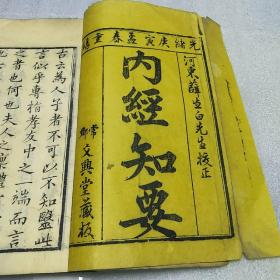 光緒庚寅孟春重鐫
河東薛生白先生校正
內經知要
常郡
文興堂藏板
古云為人子者不可以不知醫此
言似乎專指孝友中之一端而言
之者也何也夫人之稟體